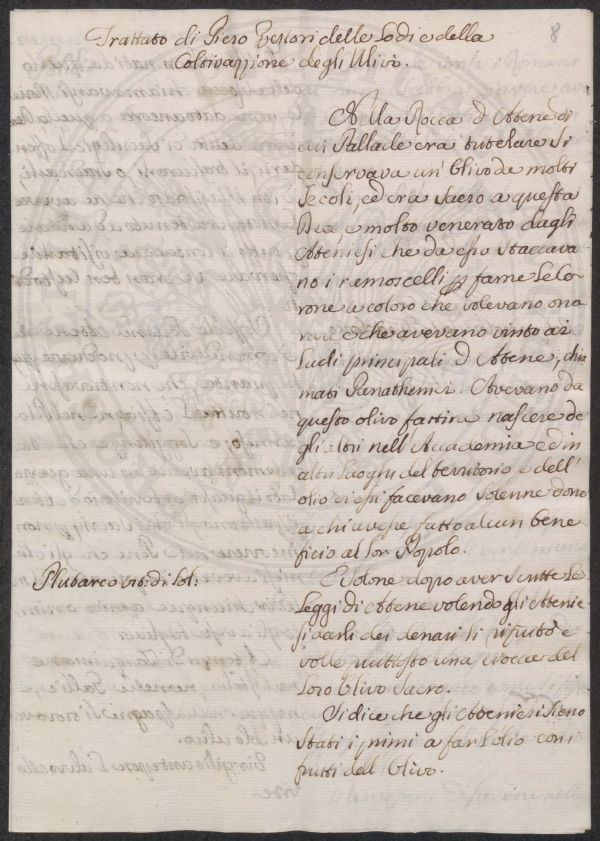 8
Trattato di Piero Vettori delle Lodi e della
Coltivazzione degli Ulivi.
Nella Rocca d'Atene di
cui Pallade era tutelare si
conservava un' Ulivo da molti
secoli, ed era sacro a questa
Dea, e molto venerato dagli
Ateniesi che da esso staccava
no i ramoscelli p farne le Co
rone a coloro che volevano ono
rare e che avevano vinto ai
Ludi principali d'Atene, chia
mati Panathenici. Avevano da
questo olivo fattine nascere de
gli altri nell'Accademia ed in
altri luoghi del territorio e dell'
olio ei essi facevano solenne dono
a chi avesse fatto alcun bene
ficio al lor Popolo.
Plutarco vit: di Sol:
E Solone dopo aver scritte le
Leggi di Atene volendo gli Atenie
si darli dei denari li rifiutò e
volle piuttosto una ciocca del
loro Ulivo Sacro.
Si dice che gli Ateniesi sieno
stati i primi a far l'olio con i
frutti dell'Ulivo.